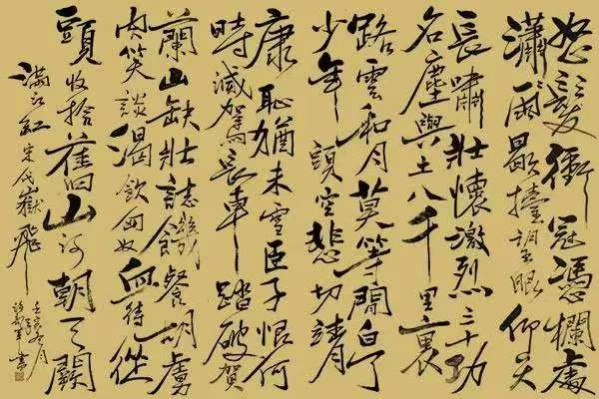 怒髮衝冠憑欄處
瀟々雨歇擡望眼仰天
長嘯壯懷激烈三十功
名塵與土八千里裏
路雲和月莫等閒白了
少年頭空悲切靖
康恥猶未雪臣子恨何
時滅駕長車踏破賀
蘭山缺壯誌饑餐胡虜
肉笑談渴飲匈奴血待從
頭收拾舊山河朝天闕
滿江紅宋代嶽飛
月
書